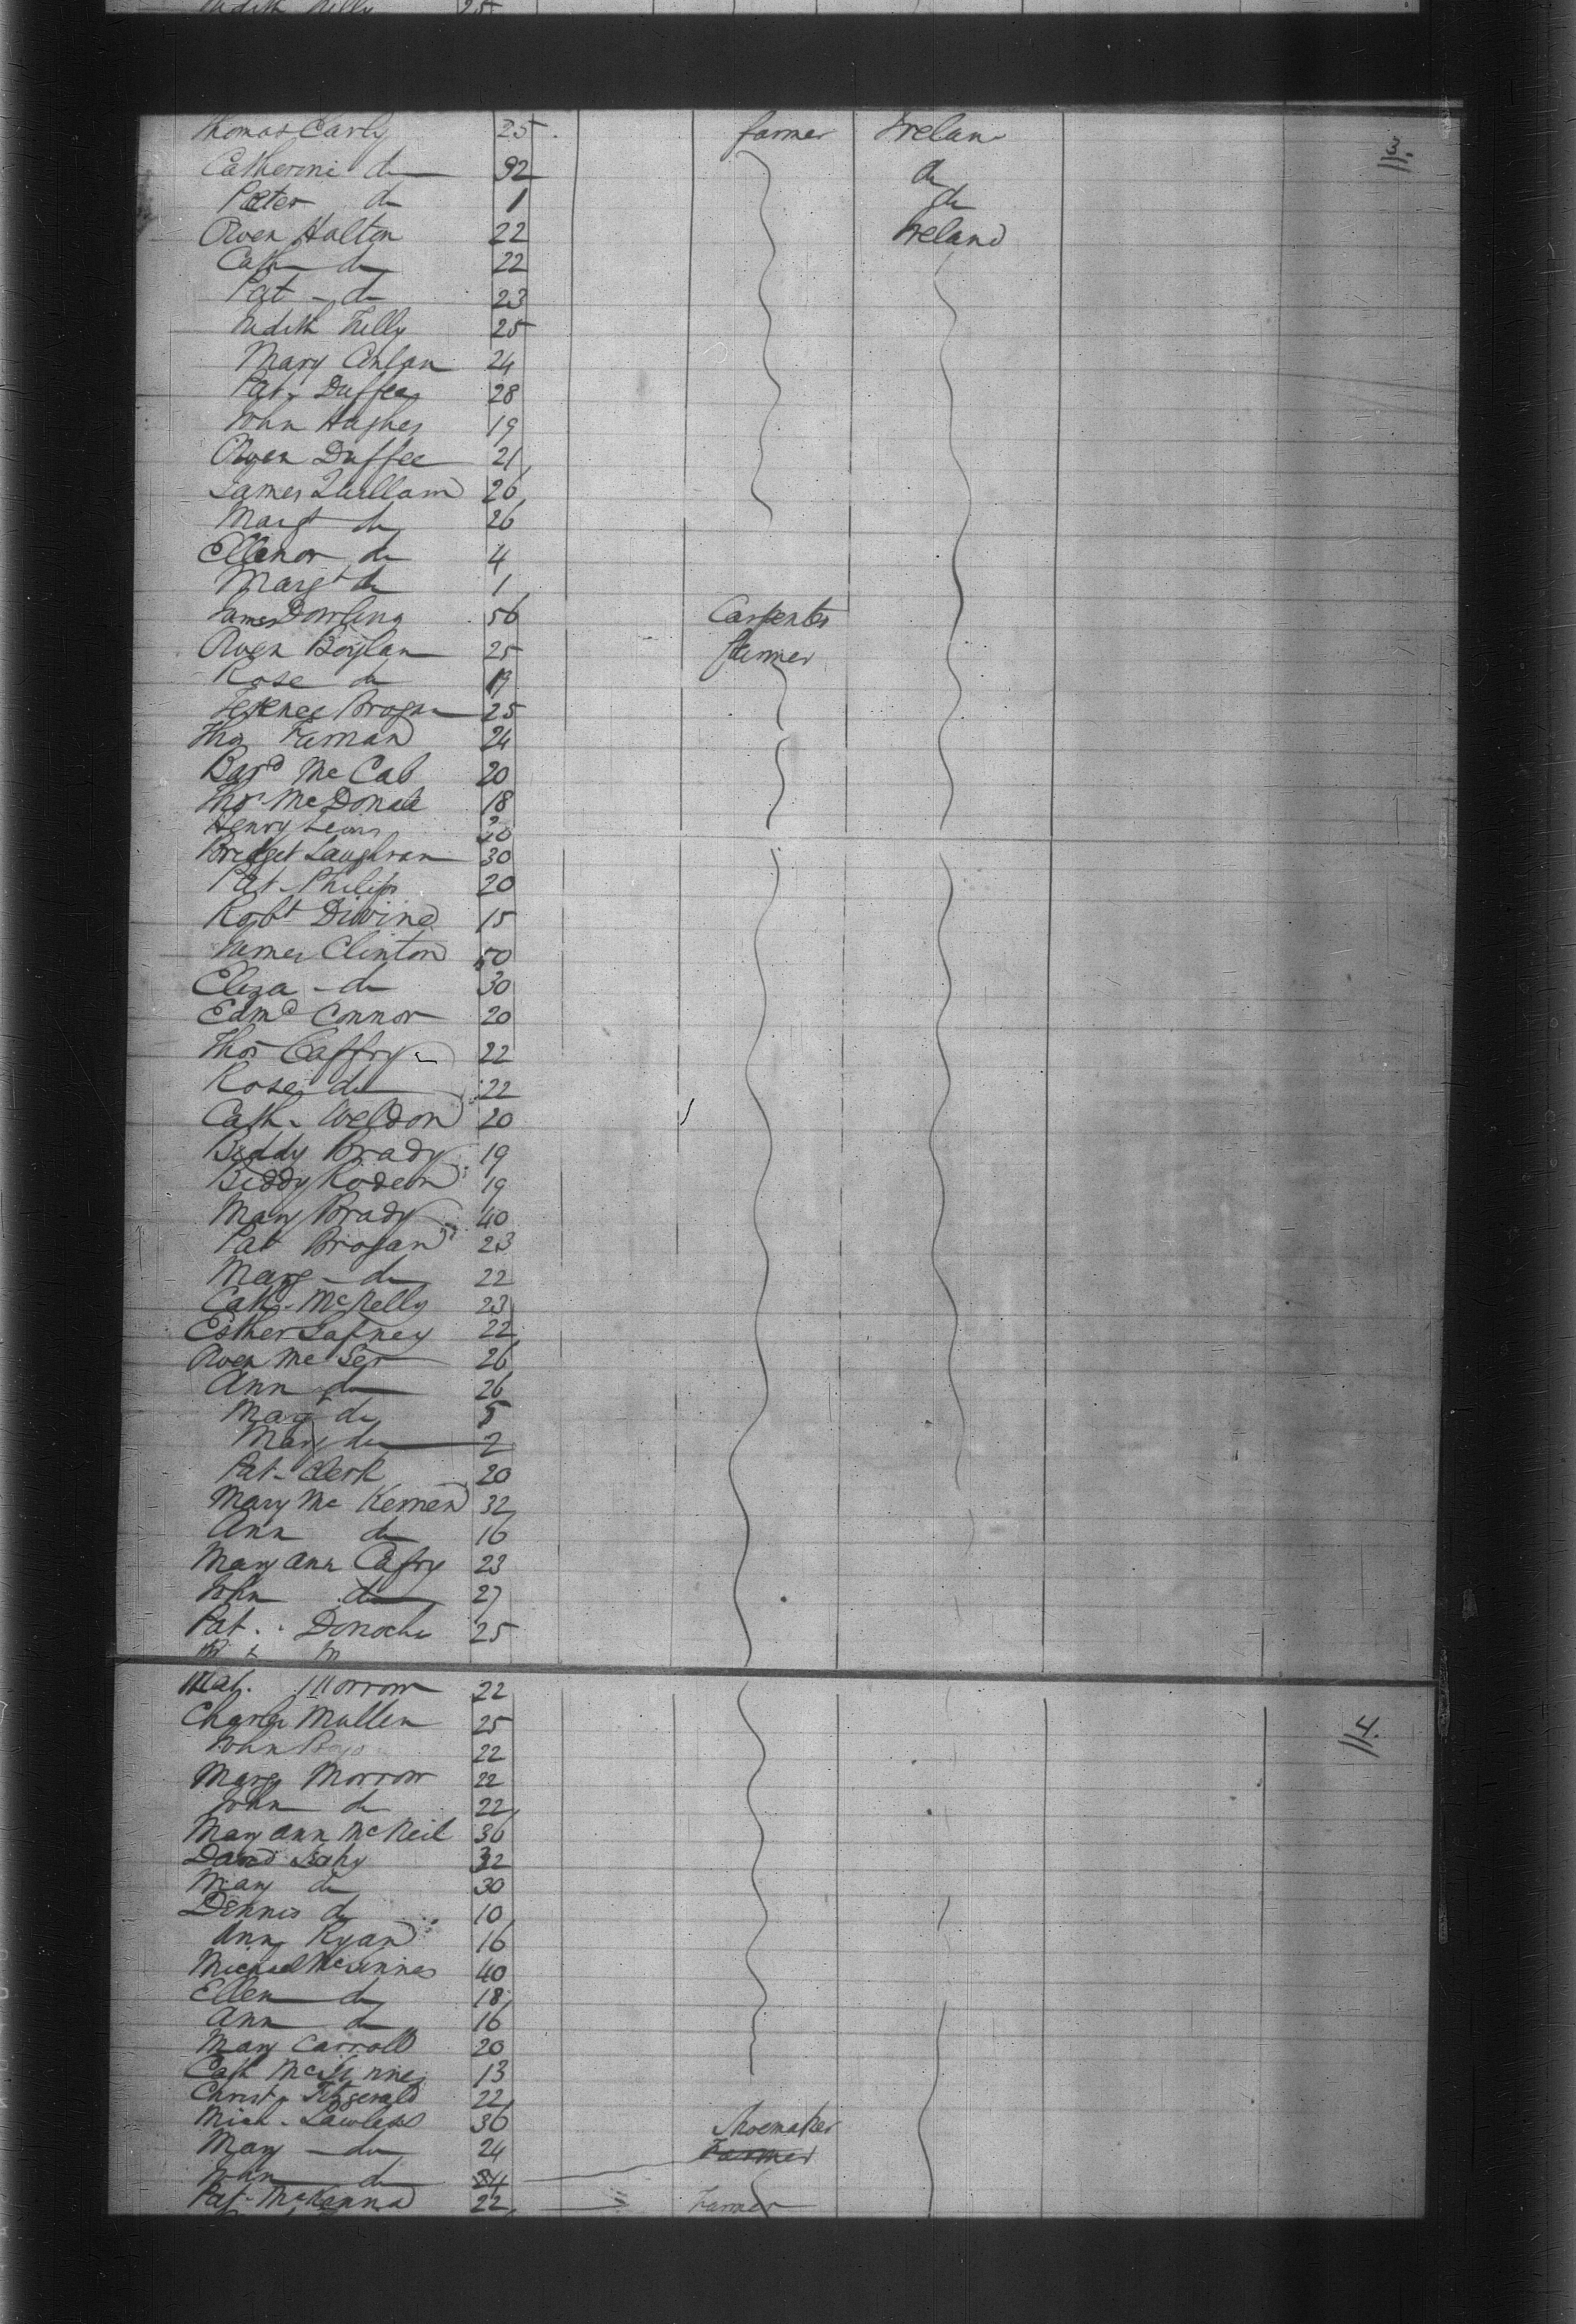 Judith Kelly 25
3.
Thomas Carly 25 farmer Ireland
Catherine do 32 do
Peter do 1 do
Owen Halton 22 Ireland
Cath do 22
Pat - do 23
Judith Kelly 25
Mary Conlan 24
Pat. Duffee 28
John Hughes 19
Owen Duffee 21
James Quillam 26
Margt do 26
Ellenor do 4
Margt do 1
James Dowling 56 Carpenter
Owen Boylan 25 farmer
Rose do 19
Terence Brogan 25
Thos Farnan 24
Bard McCab 20
Thos McDonald 18
Henry Lewis 30
Bridget Laughran 30
Pat. Philips 20
Robt Divine 15
James Clinton 50
Eliza - do 30
Edmd Connor 20
Thos Caffry 22
Rose do 22
Cath. Weldon 20
Biddy Brady 19
Biddy Rodden 19
Mary Brady 40
Pat Brogan 23
Marg - do 22
Cath. McKelly 23
Esther Gafney 22
Owen Mc 26
Ann do 26
Margt do 5
Mary do 2
Pat. Clerk 20
Mary Mc Kernen 32
Ann do 16
Mary Ann Cafry 23
John do 27
Pat. Donocho 25
4.
Mat. Morrow 22
Charles Mullen 25
John 22
Marg Morrow 22
John do 22
Mary Ann McNeil 36
David 32
Mary do 30
Dennis do 10
Ann Ryan 16
Michael McGinnes 40
Ellen do 18
Ann do 16
Mary Carroll 20
Cath McGinnes 13
Christ. Fitzgerald 22
Mich. Lawless 36 Shoemaker
Mary - do 24 Farmer
John do 24
Pat. McKenna 22 Farmer